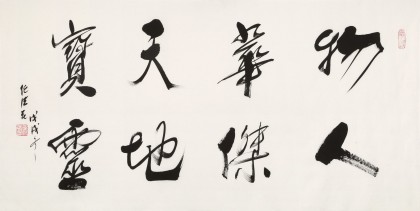 物華天寶
人傑地靈
戊戌